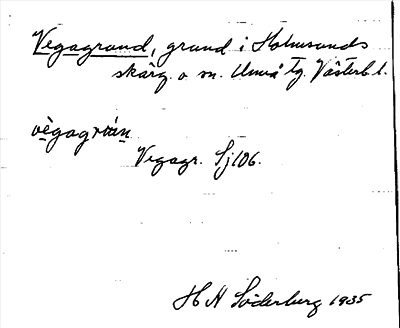 Vegagrund, grund i Holmsunds
skärg. o sn. Umeå tg. Västerb. l.
Vegagr. Sj 106.
H N Söderburg 1935